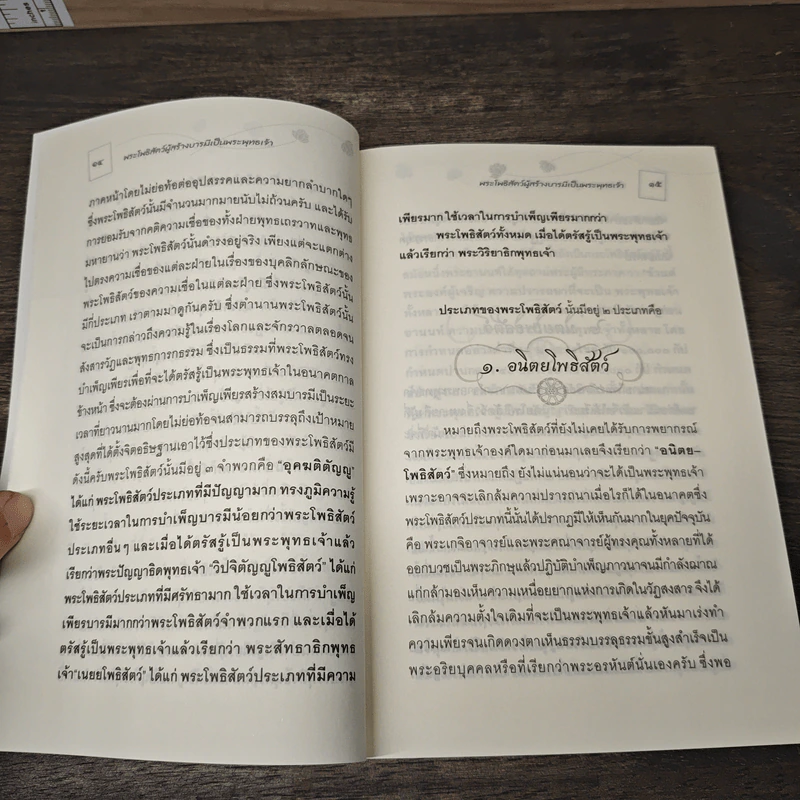 ๑๔
พระโพธิสัตว์ผู้สร้างบารมีเป็นพระพุทธเจ้า
ภาคหน้าโดยไม่ย่อท้อต่ออุปสรรคและความยากลำบากใดๆ
ซึ่งพระโพธิสัตว์นั้นมีจำนวนมากมายนับไม่ถ้วนครับ และได้รับ
การยอมรับจากคติความเชื่อของทั้งฝ่ายพุทธเถรวาทและพุทธ
มหายานว่า พระโพธิสัตว์นั้นดำรงอยู่จริง เพียงแต่จะแตกต่าง
ไปตรงความเชื่อของแต่ละฝ่ายในเรื่องของบุคลิกลักษณะของ
พระโพธิสัตว์ของความเชื่อในแต่ละฝ่าย ซึ่งพระโพธิสัตว์นั้น
มีกี่ประเภท เราตามมาดูกันครับ ซึ่งตำนานพระโพธิสัตว์นั้น
จะเป็นการกล่าวถึงความรู้ในเรื่องโลกและจักรวาลตลอดจน
สังสารวัฏและพุทธการกธรรม ซึ่งเป็นธรรมที่พระโพธิสัตว์ทรง
บำเพ็ญเพียรเพื่อที่จะได้ตรัสรู้เป็นพระพุทธเจ้าในอนาคตกาล
ข้างหน้า ซึ่งจะต้องผ่านการบำเพ็ญเพียรสร้างสมบารมีเป็นระยะ
เวลาที่ยาวนานมากโดยไม่ย่อท้อจนสามารถบรรลุถึงเป้าหมาย
สูงสุดที่ได้ตั้งจิตอธิษฐานเอาไว้ซึ่งประเภทของพระโพธิสัตว์มี
ดังนี้ครับพระโพธิสัตว์นั้นมีอยู่ ๓ จำพวกคือ “อุคฆติตัญญู”
ได้แก่ พระโพธิสัตว์ประเภทที่มีปัญญามาก ทรงภูมิความรู้
ใช้ระยะเวลาในการบำเพ็ญบารมีน้อยกว่าพระโพธิสัตว์
ประเภทอื่นๆ และเมื่อได้ตรัสรู้เป็นพระพุทธเจ้าแล้ว
เรียกว่าพระปัญญาธิดพุทธเจ้า “วิปจิตัญญูโพธิสัตว์” ได้แก่
พระโพธิสัตว์ประเภทที่มีศรัทธามาก ใช้เวลาในการบำเพ็ญ
เพียรบารมีมากกว่าพระโพธิสัตว์จำพวกแรก และเมื่อได้
ตรัสรู้เป็นพระพุทธเจ้าแล้วเรียกว่า พระสัทธาธิกพุทธ
เจ้า“เนยยโพธิสัตว์” ได้แก่ พระโพธิสัตว์ประเภทที่มีความ
พระโพธิสัตว์ผู้สร้างบารมีเป็นพระพุทธเจ้า
๑๕
เพียรมาก ใช้เวลาในการบำเพ็ญเพียรมากกว่า
พระโพธิสัตว์ทั้งหมด เมื่อได้ตรัสรู้เป็นพระพุทธเจ้า
แล้วเรียกว่า พระวิริยาธิกพุทธเจ้า
ประเภทของพระโพธิสัตว์ นั้นมีอยู่ ๒ ประเภทคือ
๑. อนิตยโพธิสัตว์
หมายถึงพระโพธิสัตว์ที่ยังไม่เคยได้รับการพยากรณ์
จากพระพุทธเจ้าองค์ใดมาก่อนมาเลยจึงเรียกว่า “อนิตย–
โพธิสัตว์” ซึ่งหมายถึง ยังไม่แน่นอนว่าจะได้เป็นพระพุทธเจ้า
เพราะอาจจะเลิกล้มความปรารถนาเมื่อไรก็ได้ในอนาคตซึ่ง
พระโพธิสัตว์ประเภทนี้นั้นได้ปรากฏมีให้เห็นกันมากในยุคปัจจุบัน
คือ พระเกจิอาจารย์และพระคณาจารย์ผู้ทรงคุณทั้งหลายที่ได้
ออกบวชเป็นพระภิกษุแล้วปฏิบัติบำเพ็ญภาวนาจนมีกำลังฌาณ
แก่กล้ามองเห็นความเหนื่อยยากแห่งการเกิดในวัฏสงสาร จึงได้
เลิกล้มความตั้งใจเดิมที่จะเป็นพระพุทธเจ้าแล้วหันมาเร่งทำ
ความเพียรจนเกิดดวงตาเห็นธรรมบรรลุธรรมขั้นสูงสำเร็จเป็น
พระอริยบุคคลหรือที่เรียกว่าพระอรหันต์นั่นเองครับ ซึ่งพอ